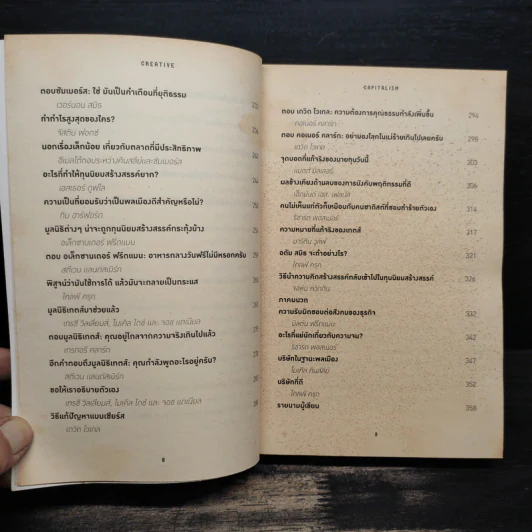 CREATIVE
ตอบซัมเมอร์ส: ใช่ มันเป็นคำเตือนที่ยุติธรรม
เวอร์นอน สมิธ
ทำกำไรสูงสุดของใคร?
จัสติน ฟอกซ์
นอกเรื่องเล็กน้อย เกี่ยวกับตลาดที่มีประสิทธิภาพ
อีเมลโต้ตอบระหว่างคินสลีย์และซัมเมอร์ส
อะไรที่ทำให้ทุนนิยมสร้างสรรค์ยาก?
เอสเธอร์ ดูฟโล
ความเป็นที่ยอมรับว่าเป็นพลเมืองดีสำคัญหรือไม่?
ทิม ฮาร์ฟอร์ด
มูลนิธิต่างๆ น่าจะถูกทุนนิยมสร้างสรรค์กระทุ้งบ้าง
อเล็กซานเดอร์ ฟรีดแมน
ตอบ อเล็กซานเดอร์ ฟรีดแมน: อาหารกลางวันฟรีไม่มีหรอกครับ
สตีเวน แลนด์สเบิร์ก
พิสูจน์ว่ามันใช้การได้ แล้วมันจะกลายเป็นกระแส
ไคลฟ์ ครุก
มูลนิธิเกตส์มาช่วยแล้ว
เทรซี วิลเลียมส์, ไมเคิล ไดช์ และ จอช แดเนียล
ตอบมูลนิธิเกตส์: คุณอยู่ไกลจากความจริงเกินไปแล้ว
เกรกอรี คลาร์ก
อีกคำตอบถึงมูลนิธิเกตส์: คุณกำลังพูดอะไรอยู่ครับ?
สตีเวน แลนด์สเบิร์ก
ขอให้เราอธิบายตัวเอง
เทรซี วิลเลียมส์, ไมเคิล ไดช์ และ จอช แดเนียล
วิธีแก้ปัญหาแบบเชียร์ส
เดวิด โวเกล
8
CAPITALISM
ตอบ เดวิด โวเกล: ความต้องการคุณธรรมกำลังเพิ่มขึ้น 294
คอเนอร์ คลาร์ก
ตอบ คอเนอร์ คลาร์ก: อย่ามองโลกในแง่ร้ายเกินไปเลยครับ 298
เดวิด โวเกล
จุดบอดที่แท้จริงของนายทุนวันนี้ 303
แมตต์ มิลเลอร์
ผลข้างเคียงด้านลบของการบังคับพฤติกรรมที่ดี 306
คนไม่เห็นแก่ตัวก็เหมือนกับคนซาดิสต์ที่ชอบทำร้ายตัวเอง 314
ริชาร์ด พอสเนอร์
ความหมายที่แท้จริงของเกตส์ 317
มาร์ติน วูล์ฟ
อดัม สมิธ จะทำอย่างไร? 321
ไคลฟ์ ครุก
วิธีนำความคิดสร้างสรรค์กลับเข้าไปในทุนนิยมสร้างสรรค์ 326
ภาคผนวก
ความรับผิดชอบต่อสังคมของธุรกิจ
มิลตัน ฟรีดแมน
อะไรที่แย่นักเกี่ยวกับความจน? 342
ริชาร์ด พอสเนอร์
บริษัทในฐานะพลเมือง 347
ไมเคิล คินสลีย์
บริษัทที่ดี 352
ไคลฟ์ ครุก
รายนามผู้เขียน 358
9